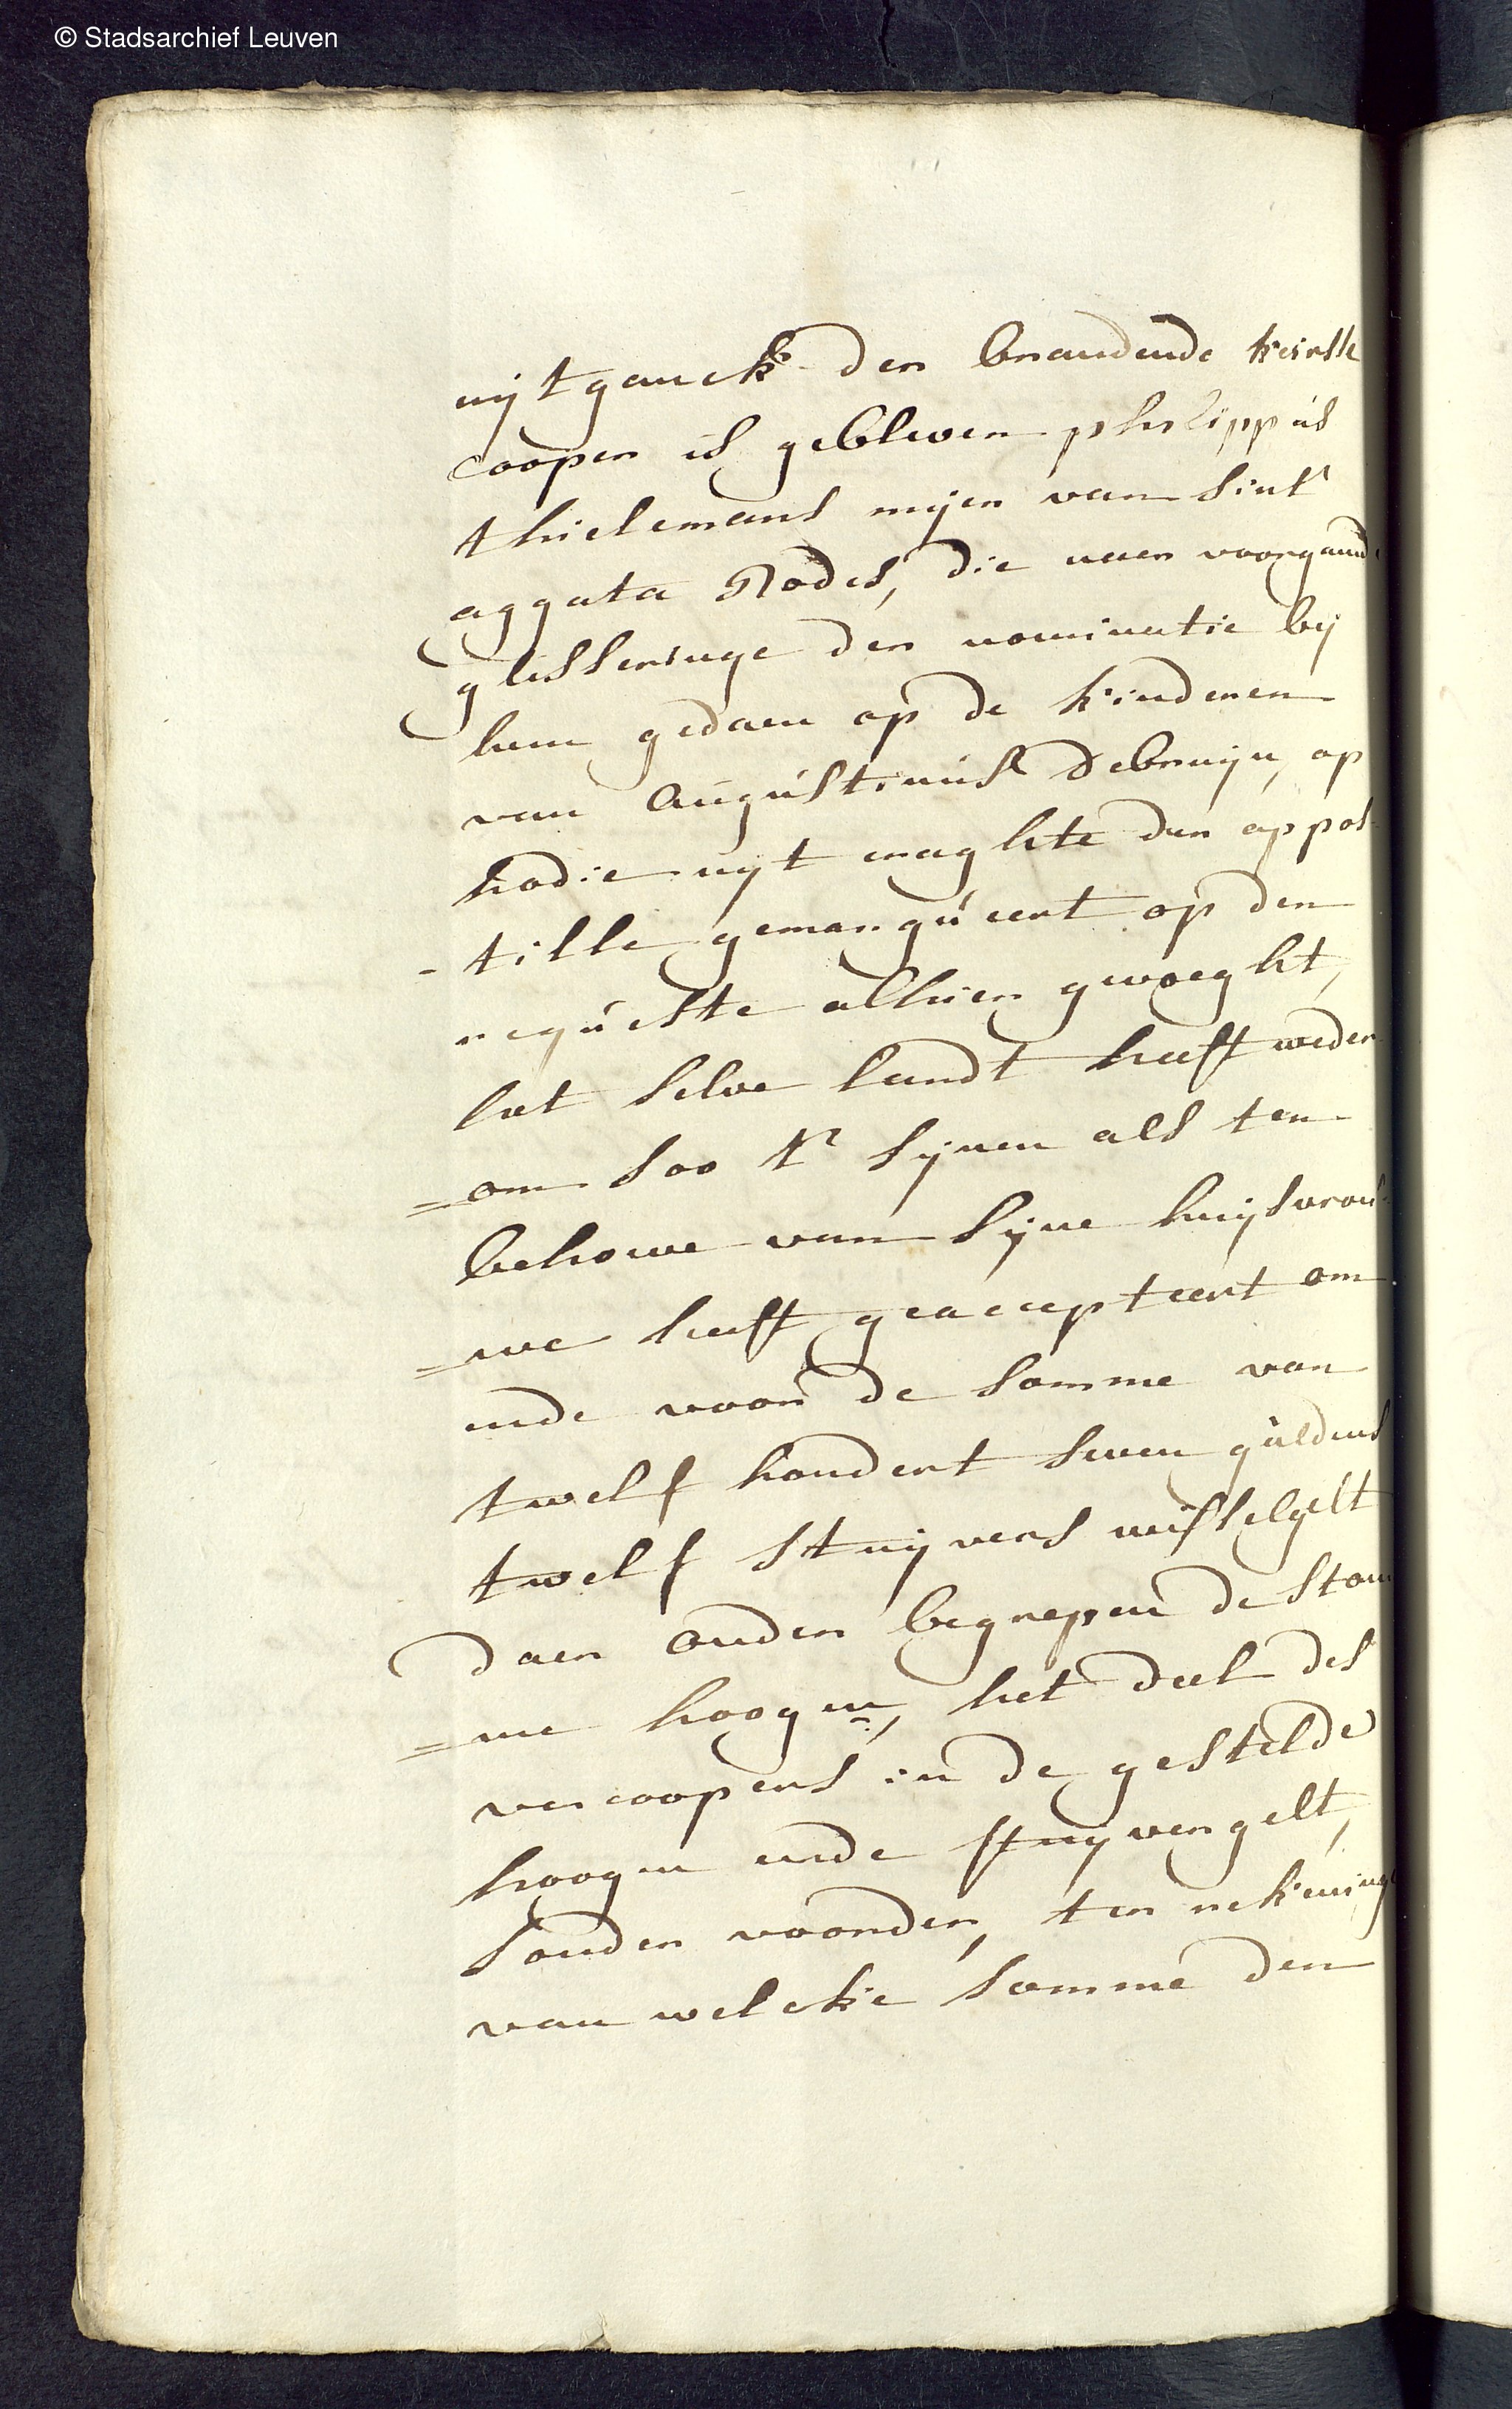 © Stadsarchief Leuven
uijtganck der brandende keirsse
cooper is gebleven philippus
thielemans meijer van sint
aggata Rodes, die naer voorgaende
glisseringe der nominatie bij
hem gedaen op de kinderen
van Augustinus Debruijn, op
hodie uijt maghte der appos-
-tille gemarqueert op den
requeste alhier gevoeght,
het selve landt heeft weder
=om soo tr sijnen als ten
behoeve van sijne huijsvrou-
=we heeft geaccepteert om
ende voor de somme van
twelf hondert seven guldens
twelf stuijvers wisselgelt
daer onder begrepen de stom
=me hoogen, het deel des
vercoopers in de gestelde
hoogen ende stuijvergelt,
sonder voorder, ter rekeninge
van welcke somme den